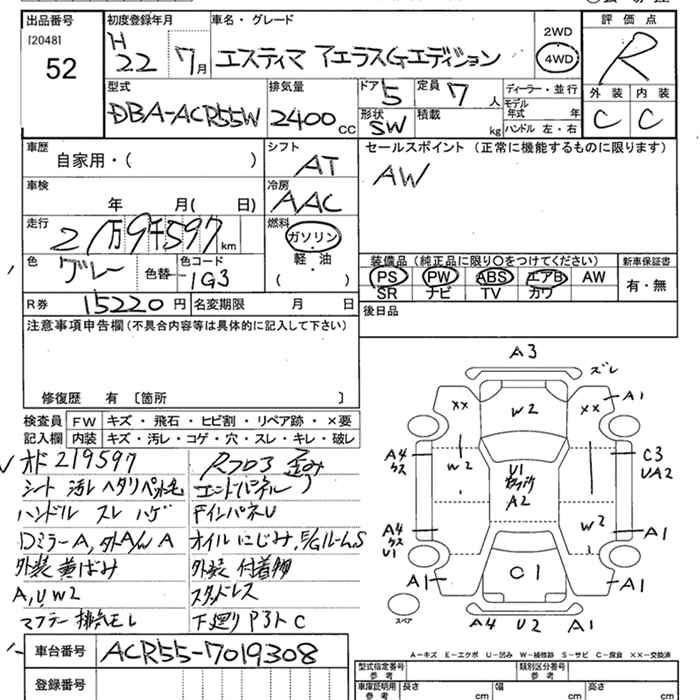 出品番号
[2048]
52
初度登録年月
H
22 7月
車名・グレード
エスティマ アエラスGエディション
2WD
4WD
評価点
R
外装 内装
C C
型式
DBA-ACR55W
排気量
2400cc
ドア 5
形状 SW
定員 7人
積載 kg
ディーラー・並行
モデル年式 年
ハンドル 左・右
車歴
自家用・( )
シフト
AT
セールスポイント (正常に機能するものに限ります)
AW
車検
年 月( 日)
冷房
AAC
走行
21万9千597km
燃料
ガソリン
軽・油
( )
色
グレー
色替
色コード
1G3
装備品 (純正品に限り○をつけてください)
新車保証書
PS PW ABS エアB AW
SR ナビ TV カワ
有・無
R券 15220円
名変期限 月 日
後日品
注意事項申告欄(不具合内容等は具体的に記入して下さい)
修復歴 有 [箇所 ]
検査員記入欄
FW キズ・飛石・ヒビ割・リペア跡・×要
内装 キズ・汚レ・コゲ・穴・スレ・キレ・破レ
オド 219597
シート 汚レ ヘタリ
ハンドル スレ ハゲ
Dミラー A, 外A/W A
外装 黄ばみ
A, U W2
マフラー 排気モレ
Rフロア 歪み
エンドパネル 〃
FインパネU
オイルにじみ,
外装 付着物
スタッドレス
下廻り
A3
ズレ
×× ××
W2
A1
A4
W2
U1
A2
C3
UA2
A4
U1
W2
A1
A1
C1
A1
スペア
A4 U2 A1
A−キズ E−エクボ U−凹み W−補修跡 S−サビ C−腐食 ××−交換済
車台番号 ACR55-7019308
登録番号
型式指定番号
参考
類別区分番号
参考
車庫証明用
参考
長さ cm
幅 cm
高さ cm